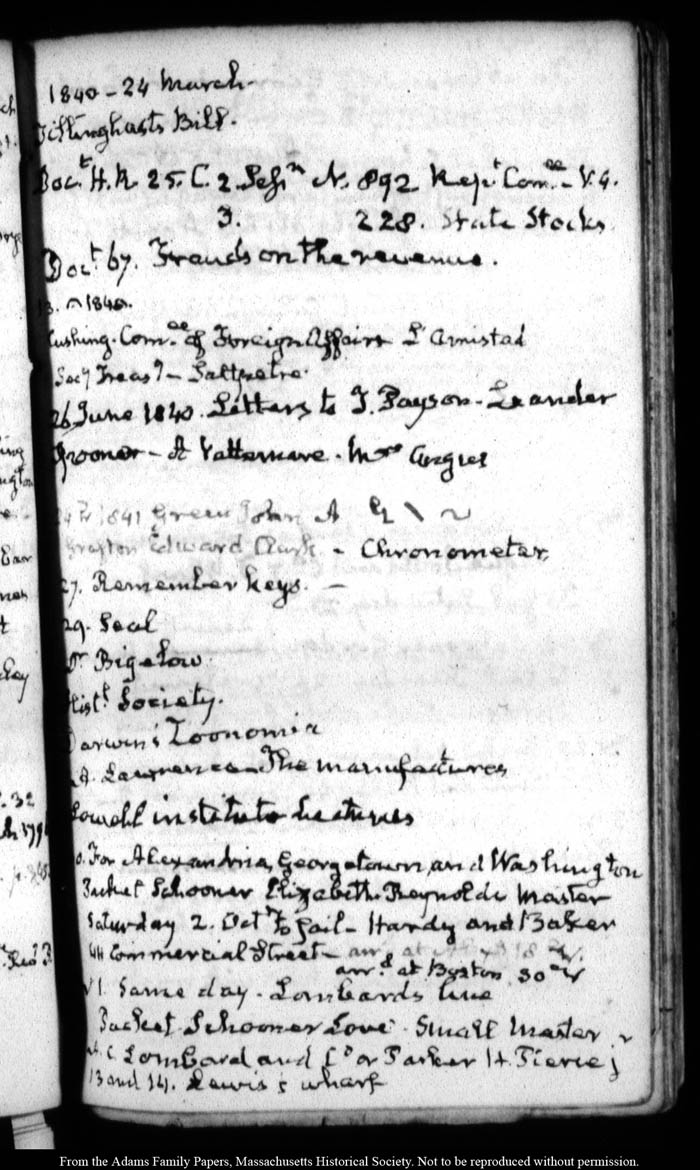 1840 - 24 March
Tillinghasts Bill.
Doct. H.R. 25. C. 2 Sessn N. 892 Rept Comee - V. 4.
3. 228. State Stocks
Doct 67. Frauds on the revenue.
1840.
Cushing. Comee of Foreign Affairs L'Amistad
Secy Treasy - Saltpetre.
26 June 1840. Letters to J. Payson - Leander
- A Vattemare. Mrs
1841 Green John A
Grafton Edward Clark - Chronometer
27. Remember keys. -
29. Seal
Dr Bigelow.
Histl Society.
Darwin's Zoonomia
A. Lawrence - The manufactures
Lowell institute Lectures
For Alexandria, Georgetown and Washington
Packet Schooner Elizabeth. Reynolds Master
Saturday 2. Octr to sail - Hardy and Baker
Commercial Street - arr. at
arrd at Boston 30
VI. Same day. Lombards line
Packet Schooner Love. Small Master
Lombard and Co or Parker H. Pierce j
13 and 14. Lewis's wharf
From the Adams Family Papers, Massachusetts Historical Society. Not to be reproduced without permission.